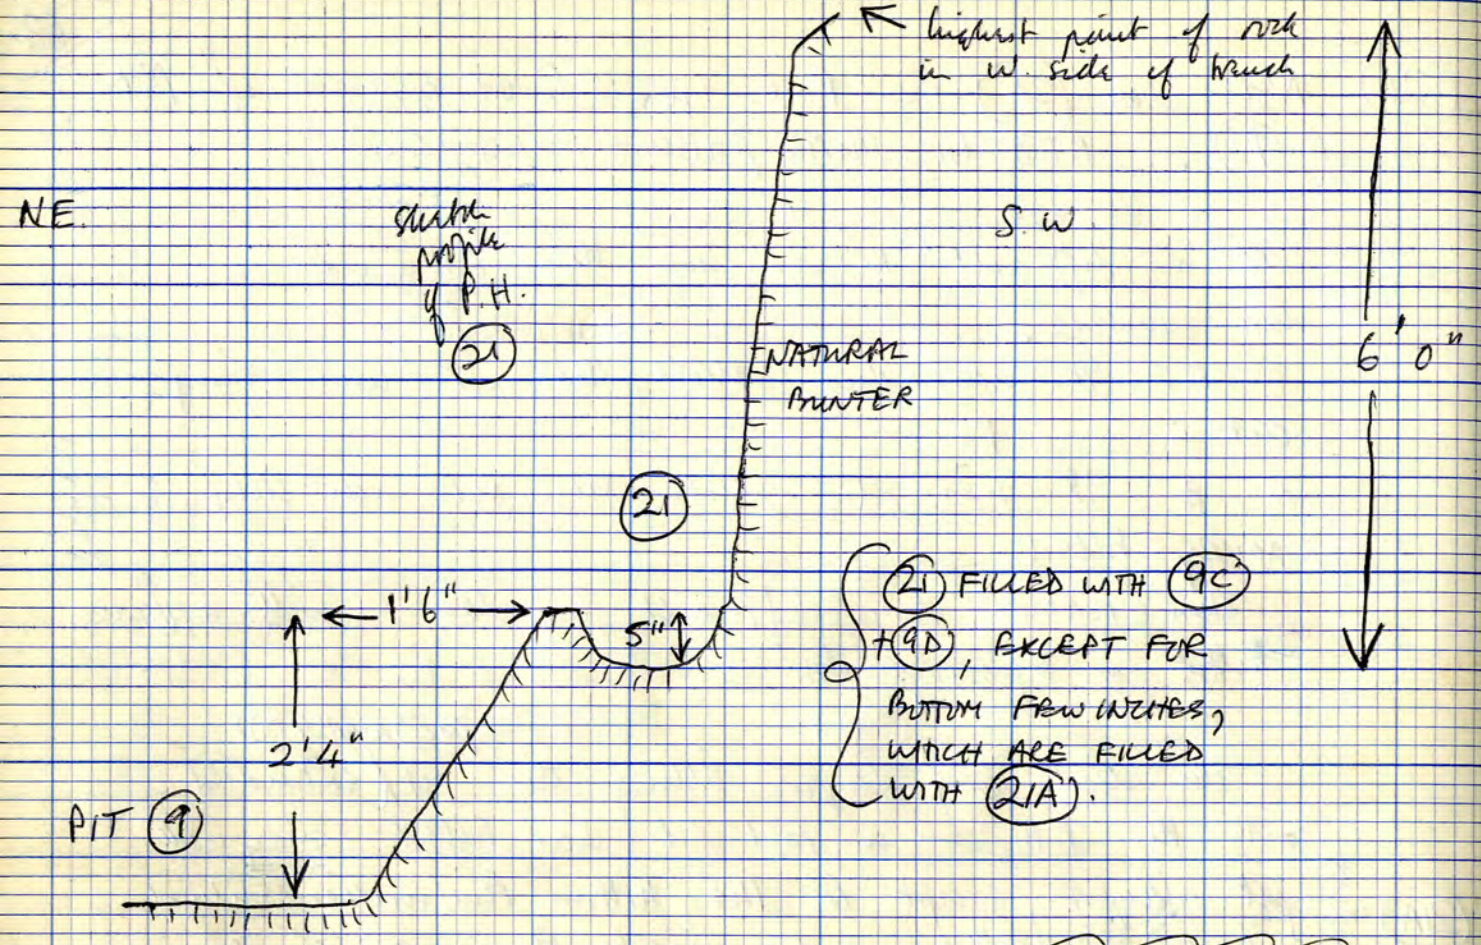 highest point of rock
in W. side of trench
NE.
sketch
profile
of P.H.
21
S.W.
6'0"
NATURAL
BUNTER
21
1'6"
5"
2'4"
PIT 9
21 FILLED WITH 9C
+ 9D, EXCEPT FOR
BOTTOM FEW INCHES,
WHICH ARE FILLED
WITH 21A.